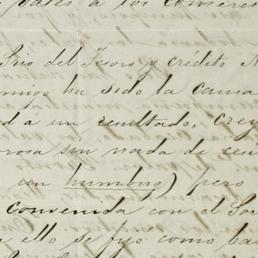 á los
Srio del Tesoro y crédito N
migo ha sido la causa
d a un resultado, crey
rosa sin nada de
un humbug) pero
convenida con el Sor
ello se fijó como ba